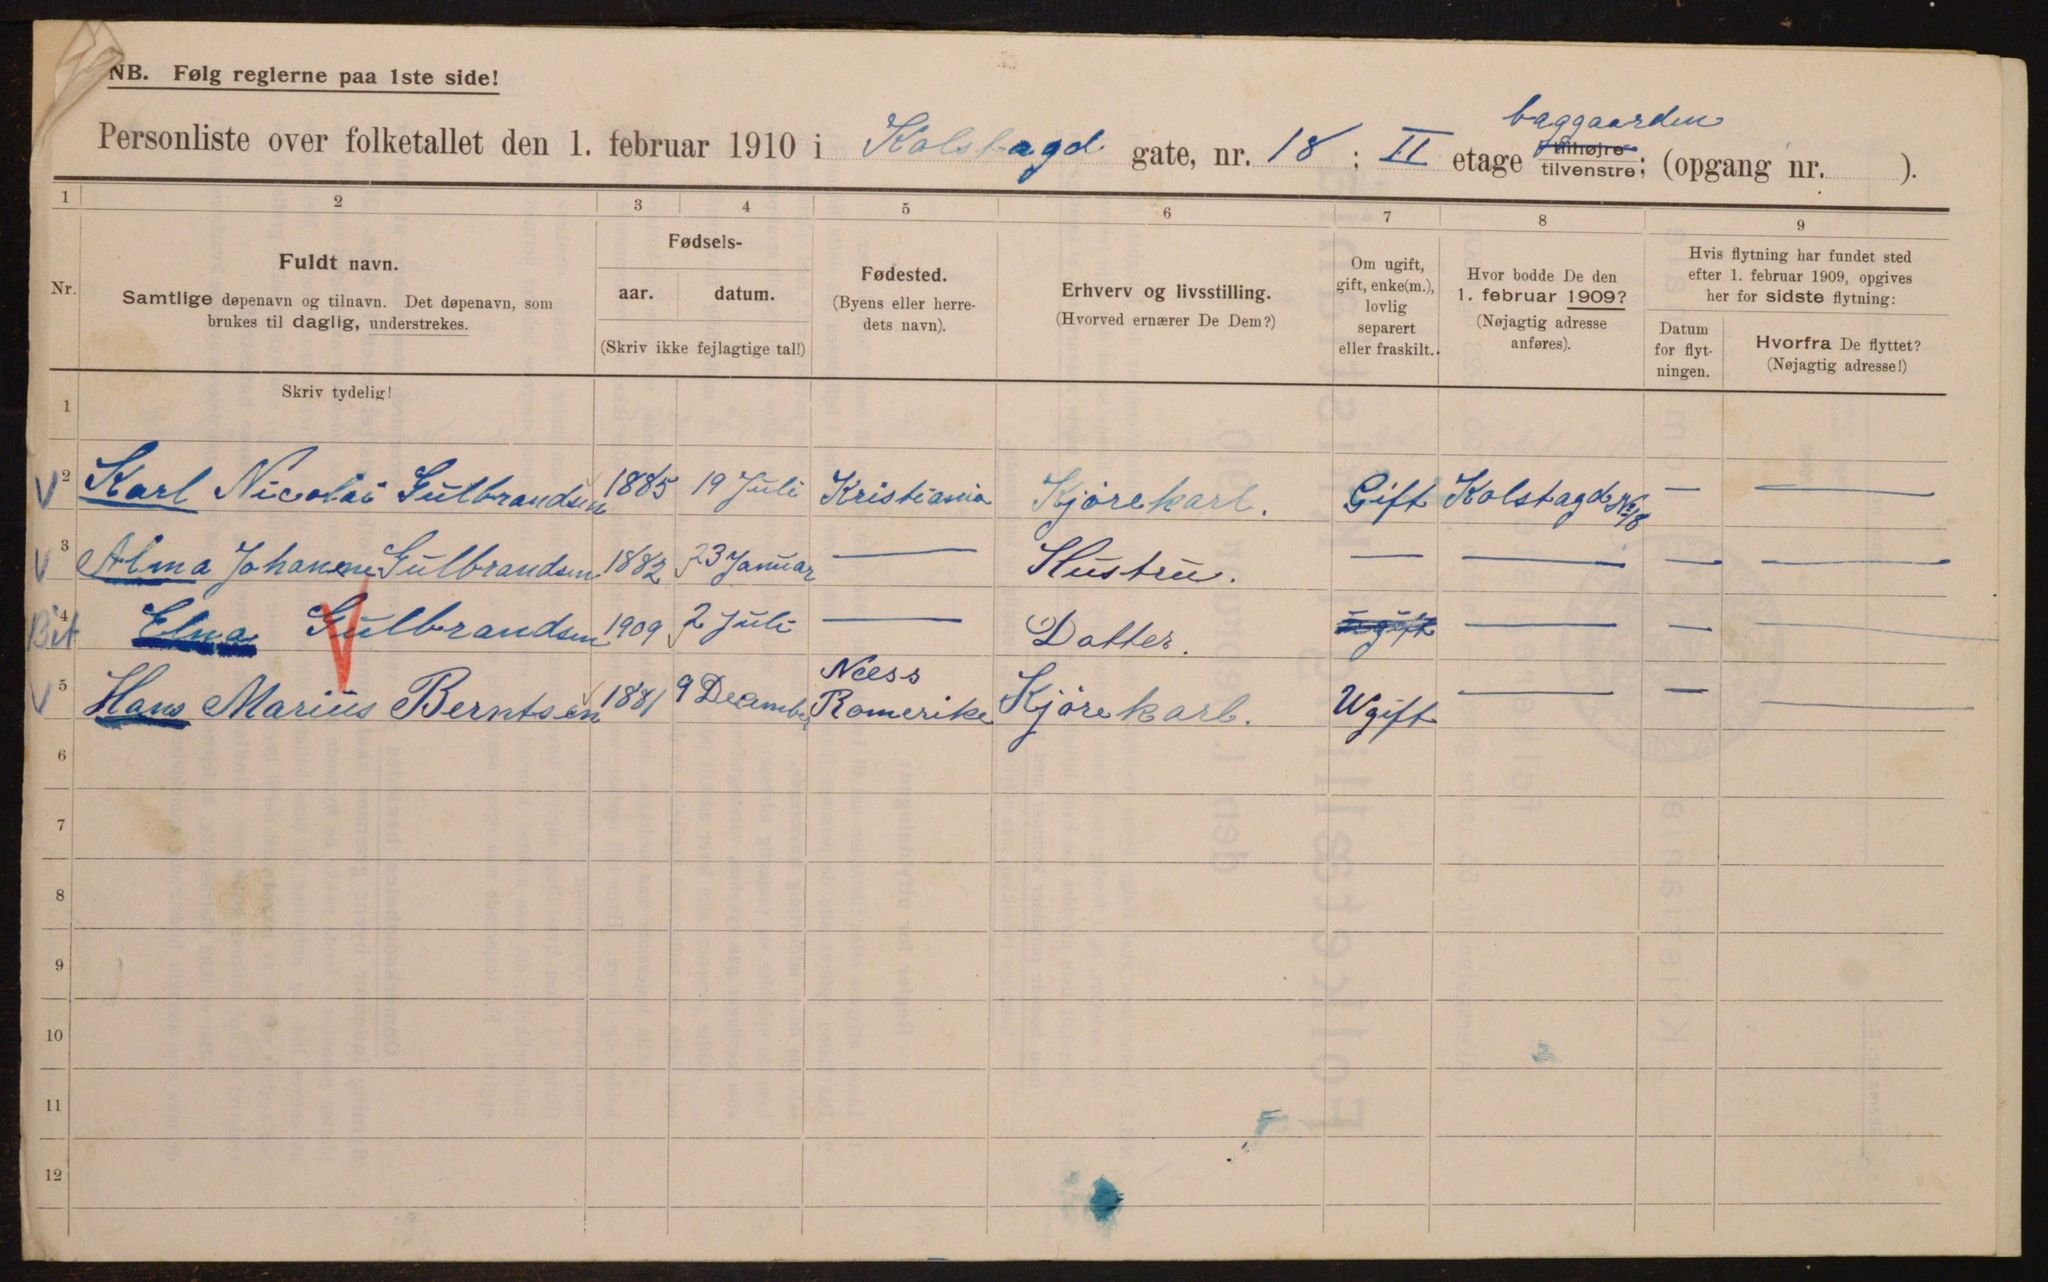 NB. Følg reglerne paa 1ste side!
baggaarden
Personliste over folketallet den 1. februar 1910 i Kolstagd gate, nr. 18 ; II etage tilhøjre tilvenstre; (opgang nr. ).
1 2 3 4 5 6 7 8 9
Nr.
Fuldt navn.
Samtlige døpenavn og tilnavn. Det døpenavn, som
brukes til daglig, understrekes.
Fødsels-
aar. datum.
(Skriv ikke fejlagtige tal!)
Fødested.
(Byens eller herre-
dets navn).
Erhverv og livsstilling.
(Hvorved ernærer De Dem?)
Om ugift,
gift, enke(m.),
lovlig
separert
eller fraskilt.
Hvor bodde De den
1. februar 1909?
(Nøjagtig adresse
anføres).
Hvis flytning har fundet sted
efter 1. februar 1909, opgives
her for sidste flytning:
Datum
for flyt-
ningen.
Hvorfra De flyttet?
(Nøjagtig adresse!)
Skriv tydelig!
1
2 Karl Nicolai Gulbrandsen 1885 19 Juli Kristiania Kjørekarl. Gift Kolstagd No 18 — —
3 Alma Johanne Gulbrandsen 1882 23 Januar — Hustru. — — — —
Bit 4 Elna Gulbrandsen 1909 2 Juli — Datter. ugift — — —
5 Hans Marius Berntsen 1881 9 December Næss Romerike Kjørekarl. Ugift — — —
6
7
8
9
10
11
12